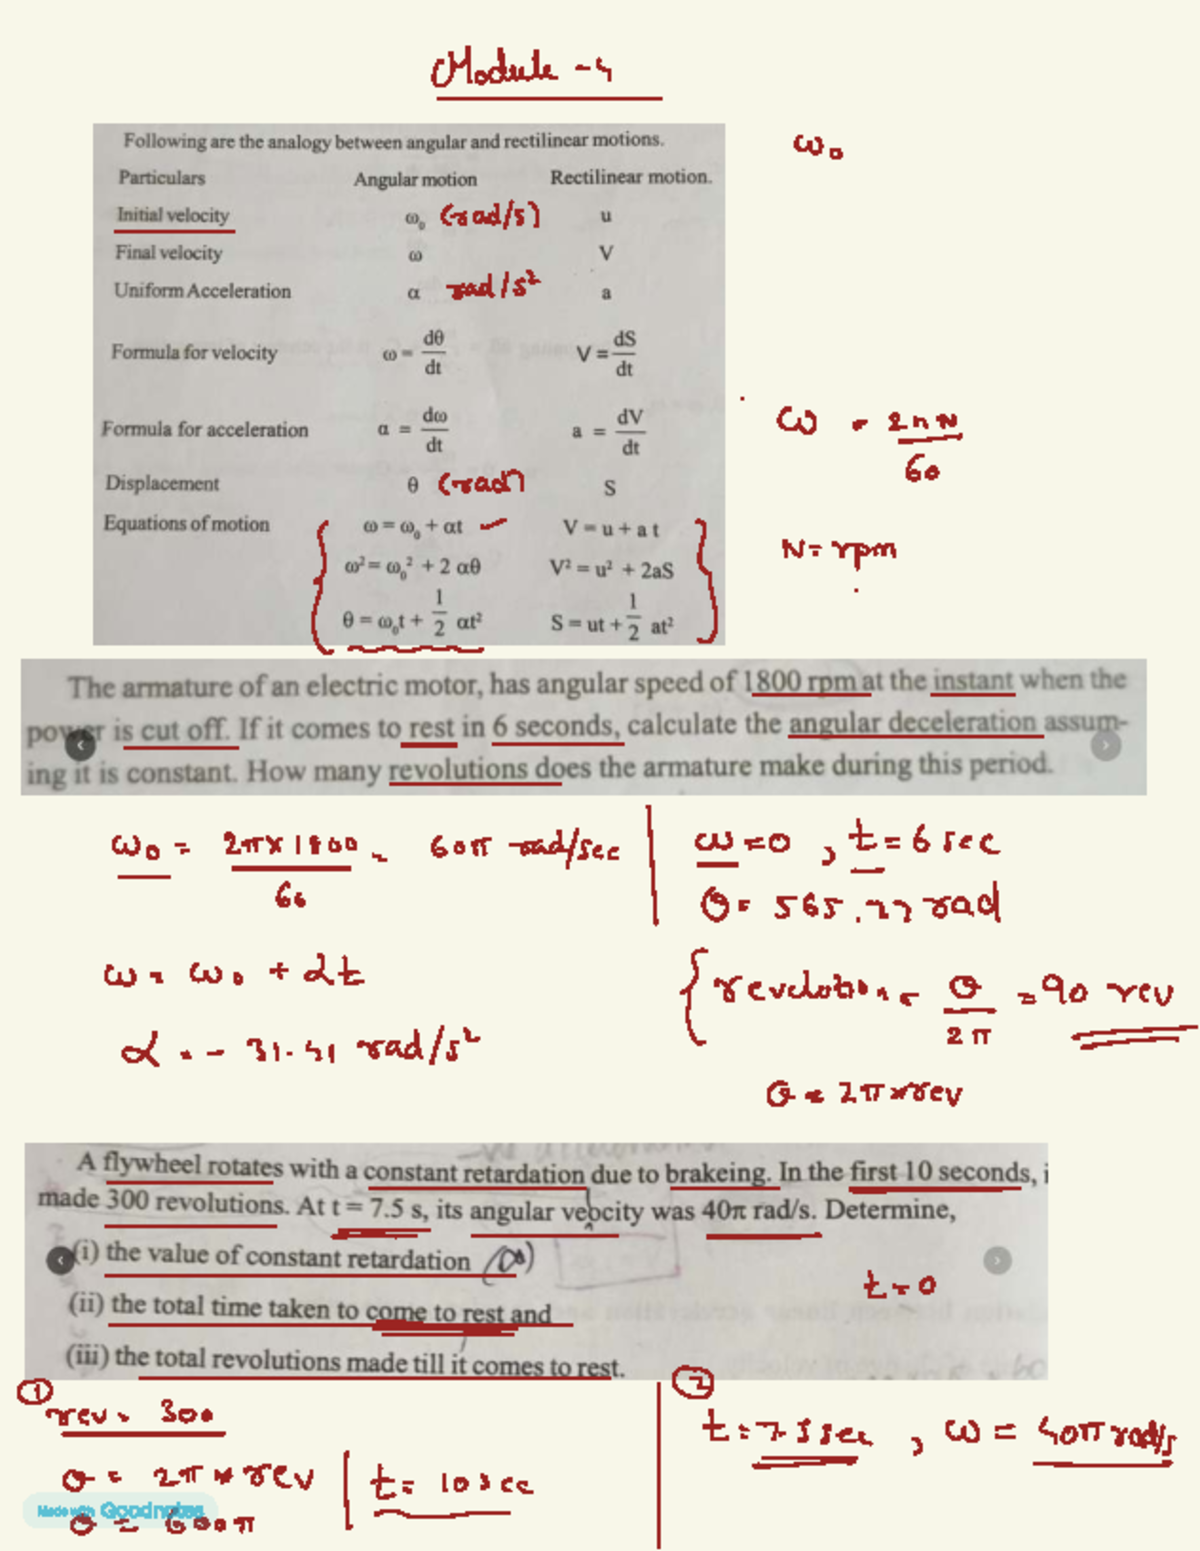 Module - 4
Following are the analogy between angular and rectilinear motions.
ω₀
Particulars Angular motion Rectilinear motion.
Initial velocity ω₀ (rad/s) u
Final velocity ω V
Uniform Acceleration α rad/s² a
Formula for velocity ω = dθ/dt V = dS/dt
Formula for acceleration α = dω/dt a = dV/dt
ω = 2πN/60
Displacement θ (rad) S
Equations of motion ω = ω₀ + αt V = u + a t
N = rpm
ω² = ω₀² + 2 αθ V² = u² + 2aS
θ = ω₀t + 1/2 αt² S = ut + 1/2 at²
The armature of an electric motor, has angular speed of 1800 rpm at the instant when the
power is cut off. If it comes to rest in 6 seconds, calculate the angular deceleration assum-
ing it is constant. How many revolutions does the armature make during this period.
ω₀ = 2π×1800/60 = 60π rad/sec
ω = ω₀ + αt
α = - 31.41 rad/s²
ω = 0 , t = 6 sec
θ = 565.77 rad
revolution = θ/2π = 90 rev
θ = 2π × rev
A flywheel rotates with a constant retardation due to brakeing. In the first 10 seconds, i
made 300 revolutions. At t = 7.5 s, its angular velocity was 40π rad/s. Determine,
(i) the value of constant retardation (α)
t = 0
(ii) the total time taken to come to rest and
(iii) the total revolutions made till it comes to rest.
① rev = 300
θ = 2π × rev
θ = 600π
t = 10 sec
② t = 7.5 sec , ω = 40π rad/s
Made with Goodnotes